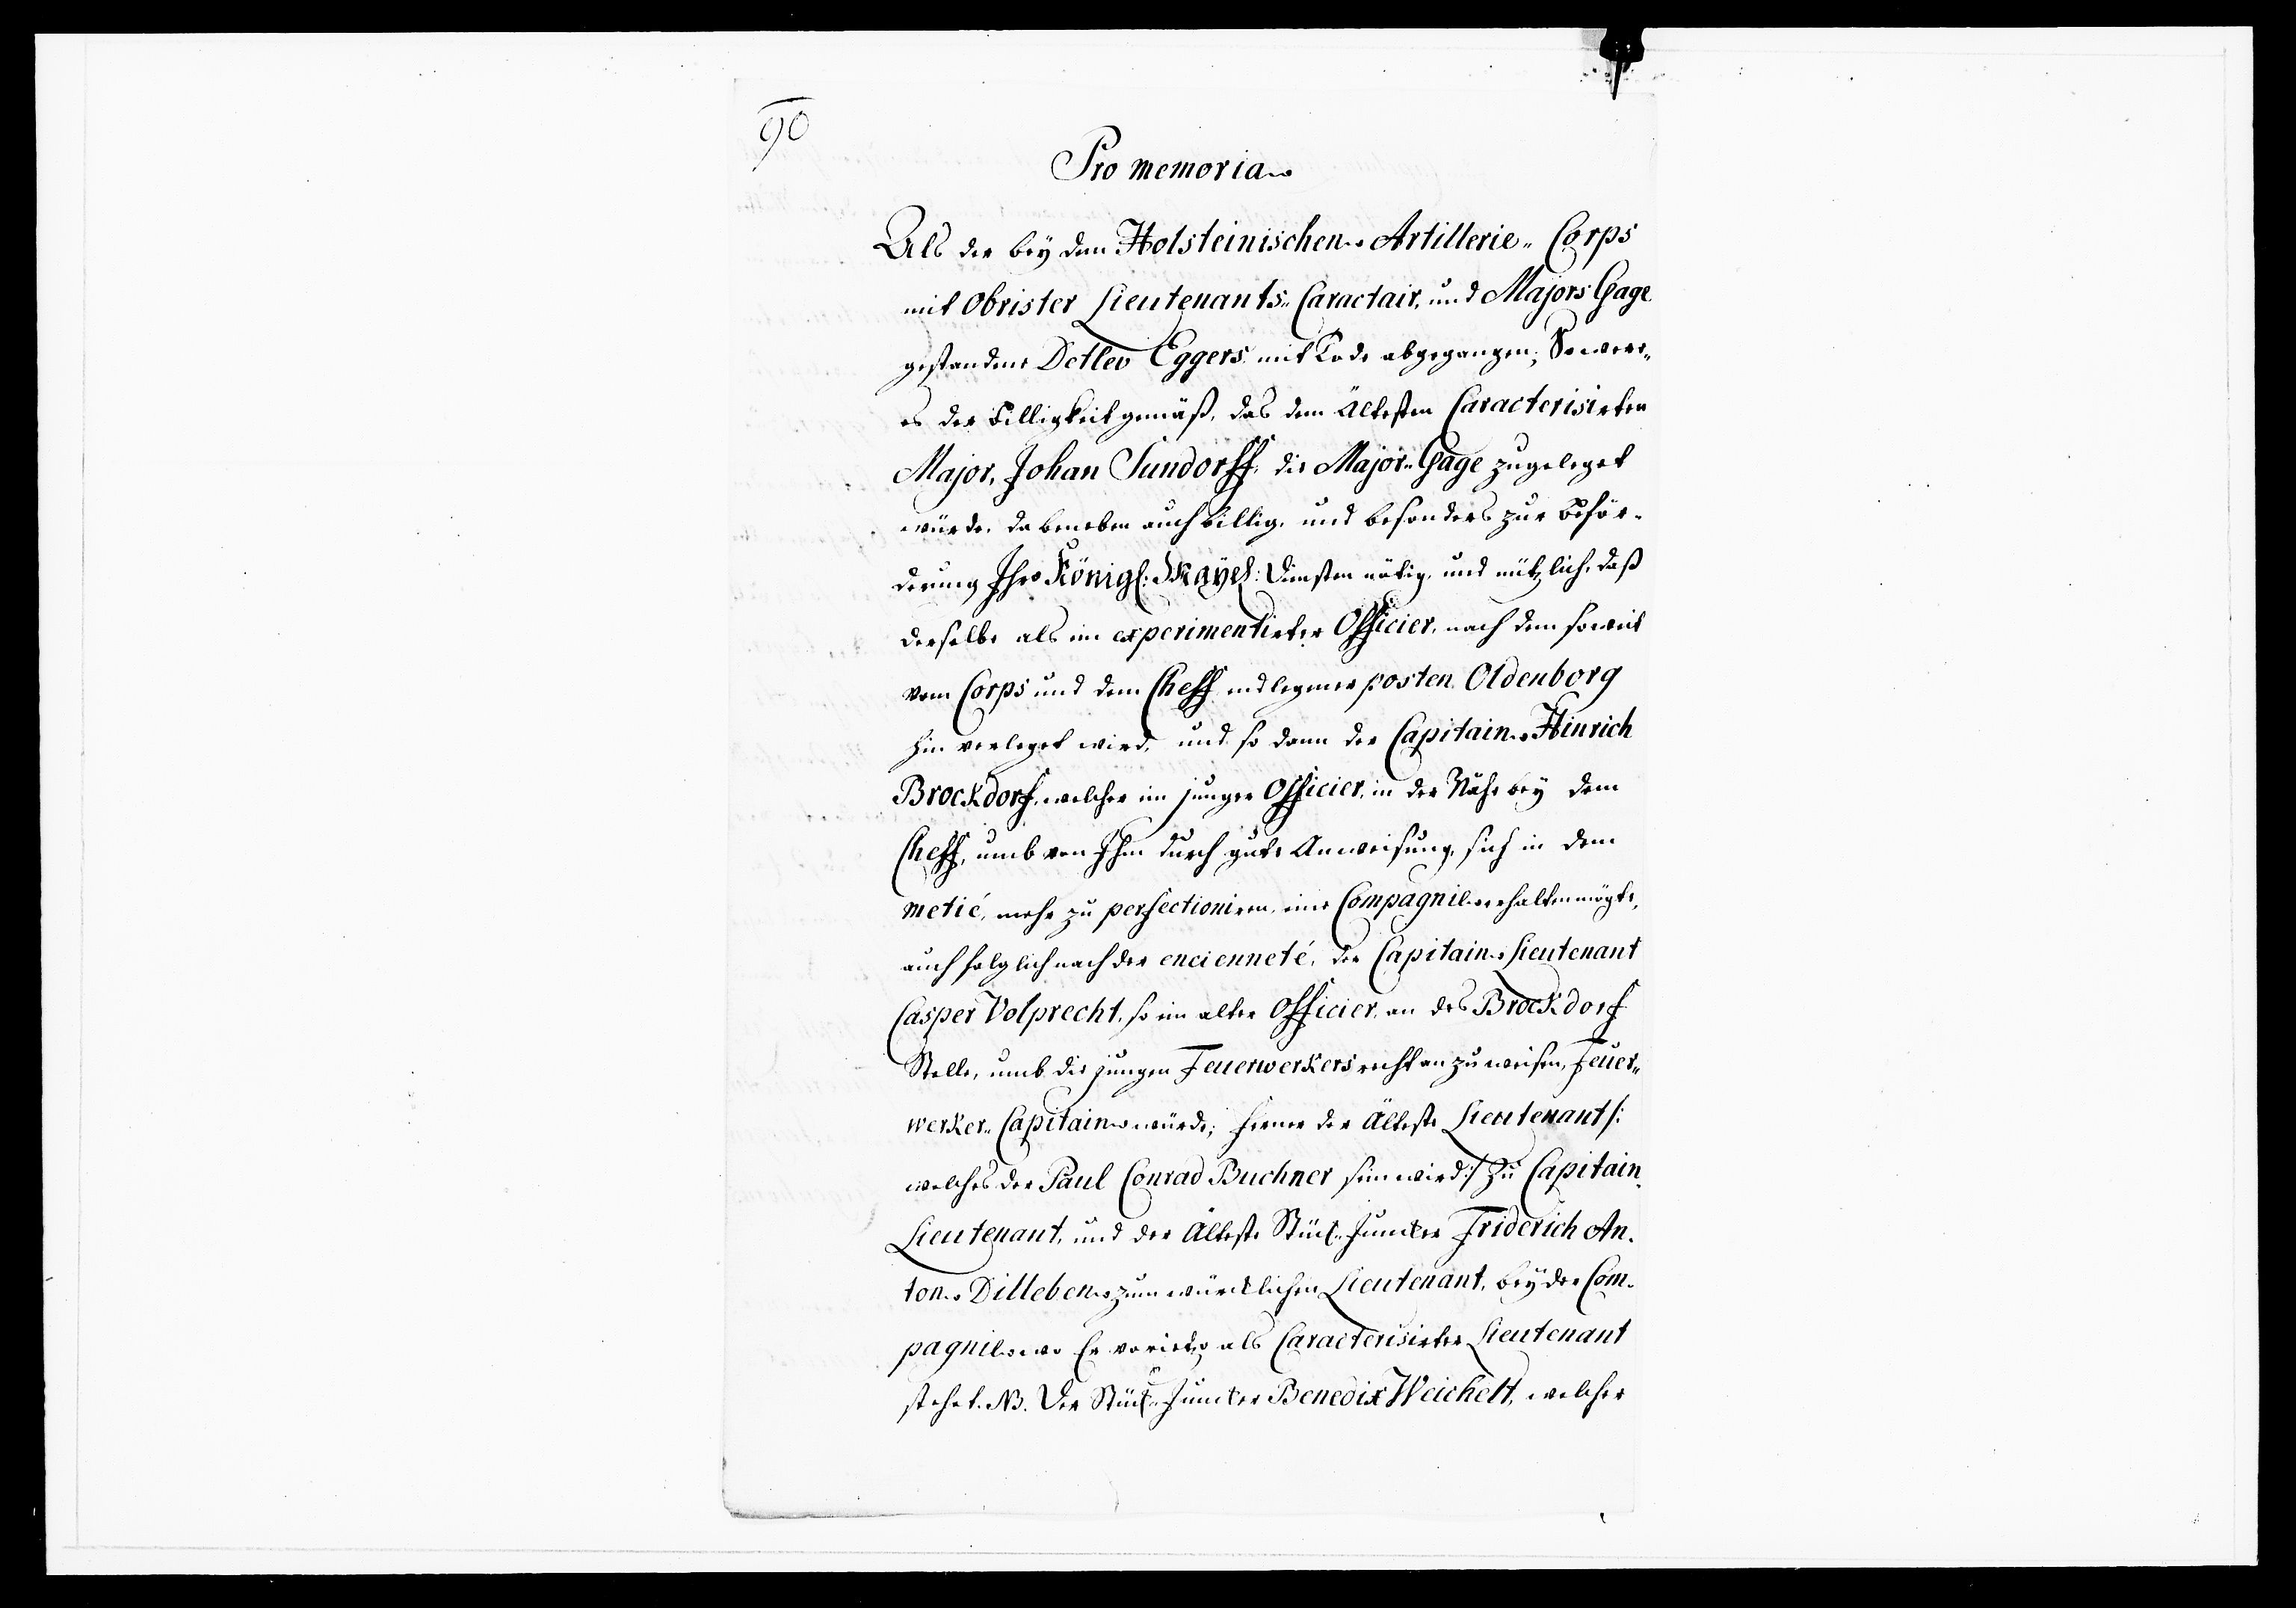 90
Pro memoria
Als der bey dem Holsteinischen Artillerie- Corps
mit Obrister Lieutenants- Caractair, und Majors Gage
gestandene Detlev Eggers mit Tode abgegangen; So were
es der Billigkeit gemäß, das dem Ältesten Caracterisirten
Major, Johan Sundorff, die Major- Gage zugeleget
würde, da beneben auch billig, und besonders zur Beför-
derung Ihro Königl: Mayes: Diensten nötig, und nützlich, daß
derselbe als ein experimentirter Officier, nach dem so weit
vom Corps und dem Cheff endlegener posten Oldenborg
hin verleget wird, und so dann der Capitain Hinrich
Brockdorf, welcher ein junger Officier, in der Nähe bey dem
Cheff, umb von Ihm durch gute Anweisung, sich in dem
metié, mehr zu perfectioniren, eine Compagnie erhalten mögte,
auch folglich nach der encienneté, der Capitain Lieutenant
Casper Volprecht, so ein alter Officier, an des Brockdorf
Stelle, umb die jungen Feuerwerkers recht anzuweisen, Feuer-
werker- Capitain würde; ferner der Älteste Lieutenant /:
welches der Paul Conrad Buchner sein wird :/ zu Capitain
Lieutenant, und der Älteste Stück- Juncker Friderich An-
ton Dilleben zum würcklichen Lieutenant, bey der Com-
pagnie wo Er vorietzo als Caracterisirter Lieutenant
stehet. NB. Der Stück- Juncker Benedix Weichelt, welcher